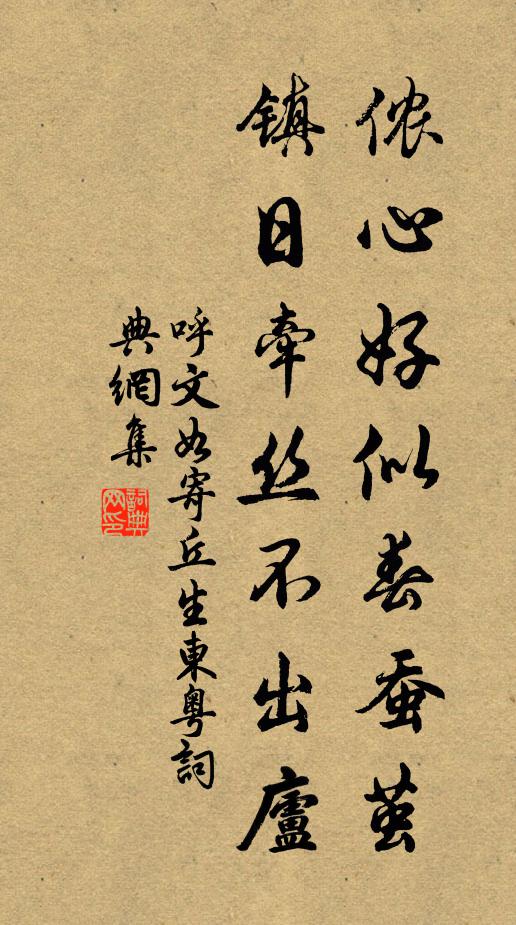 侬心好似春蚕茧
镇日牵丝不出廬
呼文如寄丘生東粵詞
典網集
詞典
网印